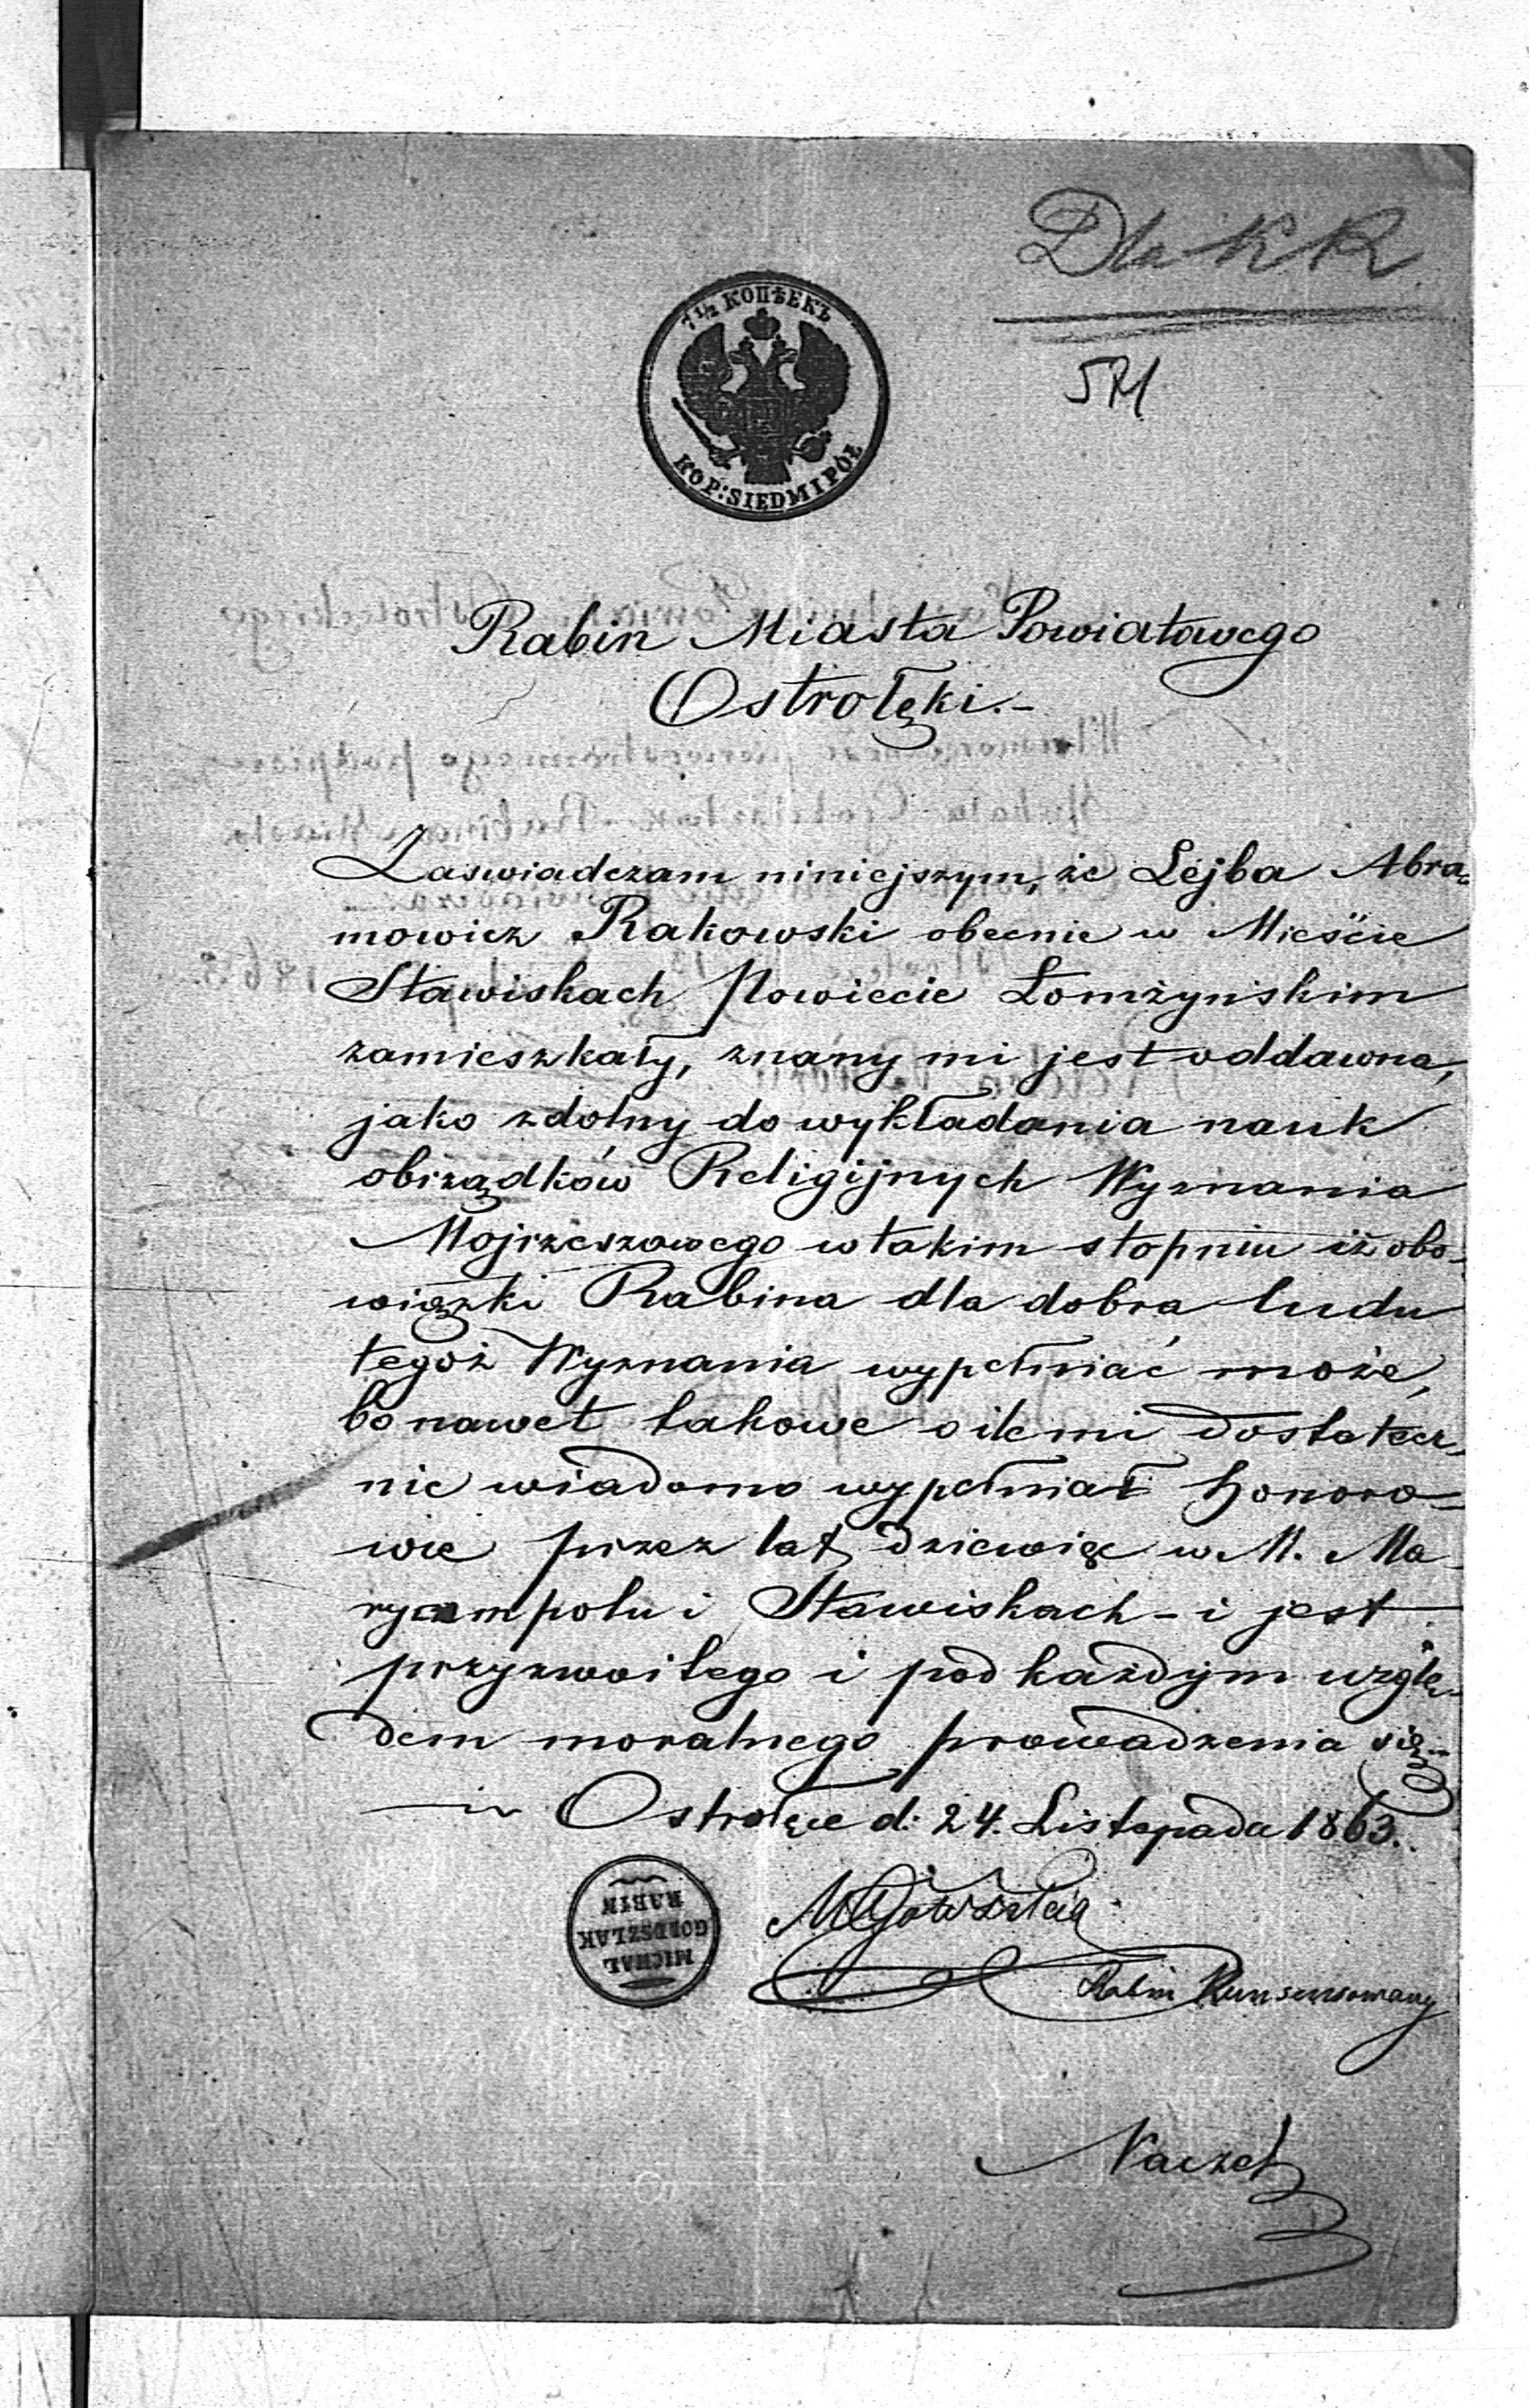 Dla K R.
571
7 1/2 КОПѢЕКЪ
KOP: SIEDM I PÓŁ
Rabin Miasta Powiatowego
Ostrołęki.-
Zaswiadczam niniejszym, że Lejba Abra-
mowicz Rakowski obecnie w Mieście
Stawiskach Powiecie Łomżyńskim
zamieszkały, znany mi jest oddawna,
jako zdolny do wykładania nauk
obrządków Religijnych Wyznania
Mojrzeszowego w takim stopniu iż obo-
wiązki Rabina dla dobra ludu
tegoż Wyznania wypełniać może,
bo nawet takowe o ile mi dostatecz-
nie wiadomo wypełniał honoro-
wie przez lat dziewięć w M. Ma-
ryampolu i Stawiskach - i jest
przyzwoitego i pod każdym wzglę-
dem moralnego prowadzenia się.-
w Ostrołęce d: 24. Listopada 1863.
MICHAŁ
GOLDSZLAK
RABIN
Rabin Kunsensowany
Naczel